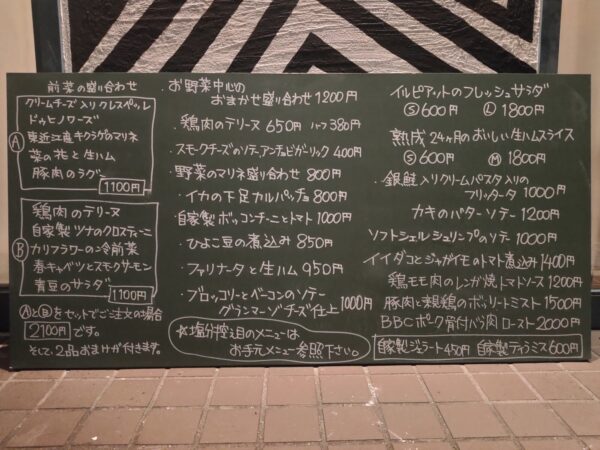 前菜の盛り合わせ
Ⓐ
クリームチーズ入りクレスペッレ
ドゥヒノワーズ
東近江産キクラゲのマリネ
菜の花と生ハム
豚肉のラグー
1100円
Ⓑ
鶏肉のテリーヌ
自家製ツナのクロスティーニ
カリフラワーの冷前菜
春キャベツとスモークサーモン
青豆のサラダ
1100円
ⒶとⒷをセットでご注文の場合
2100円です。
そして、2品おまけが付きます。
・お野菜中心の
おまかせ盛り合わせ 1200円
・鶏肉のテリーヌ 650円 ハーフ380円
・スモークチーズのソテーアンチョビガーリック 400円
・野菜のマリネ盛り合わせ 800円
・イカの下足カルパッチョ 800円
・自家製ボッコンチーニとトマト 1000円
・ひよこ豆の煮込み 850円
・ファリナータと生ハム 950円
・ブロッコリーとベーコンのソテー
グランマーゾチーズ仕上 1000円
☆塩分控え目のメニューは
お手元メニュー参照下さい。
イルピアットのフレッシュサラダ
Ⓢ600円 Ⓛ1800円
熟成24ヶ月のおいしい生ハムスライス
Ⓢ600円 Ⓜ1800円
・銀鮭入りクリームパスタ入りの
フリッタータ 1000円
カキのバターソテー 1200円
ソフトシェルシュリンプのソテー 1000円
イイダコとジャガイモのトマト煮込み 1400円
鶏モモ肉のレンガ焼トマトソース 1200円
豚肉と地鶏のボッリートミスト 1500円
BBCポーク骨付バラ肉ロースト 2000円
自家製ジェラート450円 自家製ティラミス600円